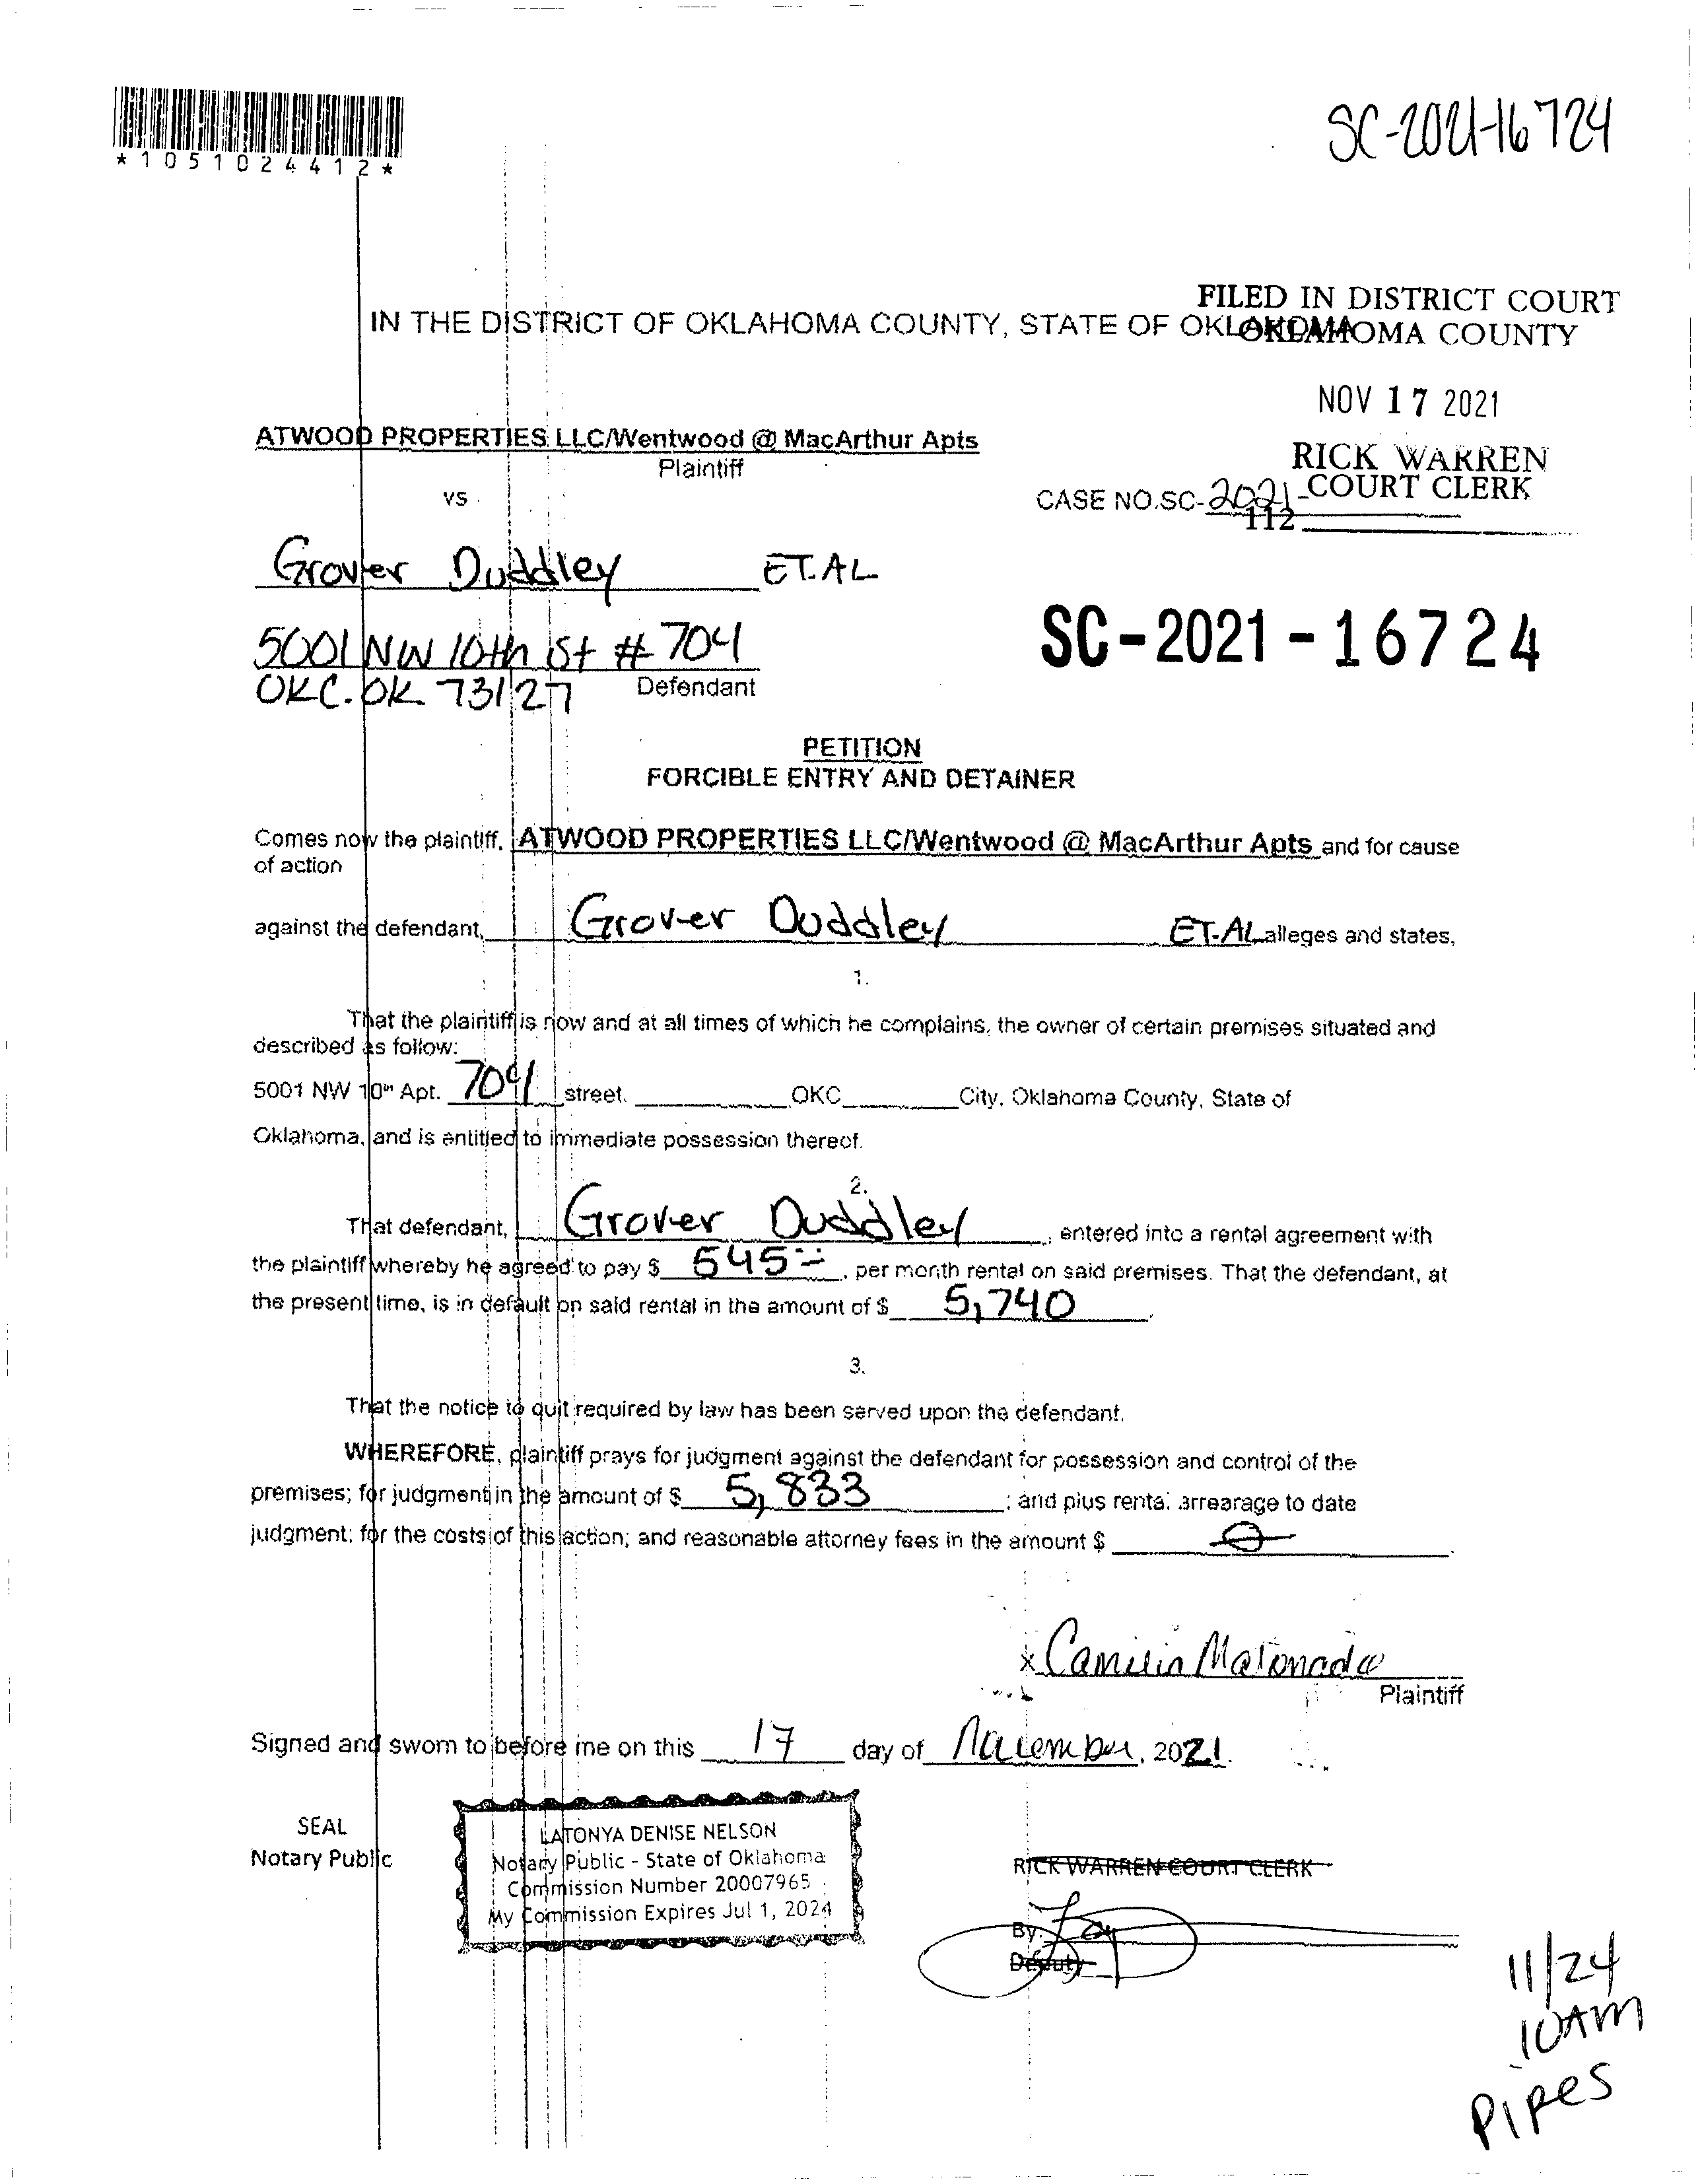 *1051024412*
SC-2021-16724
FILED IN DISTRICT COURT
OKLAHOMA COUNTY
IN THE DISTRICT OF OKLAHOMA COUNTY, STATE OF OKLAHOMA
NOV 17 2021
RICK WARREN
COURT CLERK
112
ATWOOD PROPERTIES LLC/Wentwood @ MacArthur Apts
Plaintiff
vs
CASE NO.SC-2021-
Grover Duddley ET.AL
5001 NW 10th St # 704
OKC. OK 73127
Defendant
SC-2021-16724
PETITION
FORCIBLE ENTRY AND DETAINER
Comes now the plaintiff, ATWOOD PROPERTIES LLC/Wentwood @ MacArthur Apts and for cause
of action
against the defendant, Grover Duddley ET.AL alleges and states,
1.
That the plaintiff is now and at all times of which he complains, the owner of certain premises situated and
described as follow:
5001 NW 10th Apt. 704 street. OKC City, Oklahoma County, State of
Oklahoma, and is entitled to immediate possession thereof.
2.
That defendant, Grover Duddley, entered into a rental agreement with
the plaintiff whereby he agreed to pay $ 545, per month rental on said premises. That the defendant, at
the present time, is in default on said rental in the amount of $ 5,740.
3.
That the notice to quit required by law has been served upon the defendant.
WHEREFORE, plaintiff prays for judgment against the defendant for possession and control of the
premises; for judgment in the amount of $ 5,833; and plus rental arrearage to date
judgment; for the costs of this action; and reasonable attorney fees in the amount $ 0.
x
Plaintiff
Signed and sworn to before me on this 17 day of November, 2021.
SEAL
Notary Public
LATONYA DENISE NELSON
Notary Public - State of Oklahoma
Commission Number 20007965
My Commission Expires Jul 1, 2024
RICK WARREN COURT CLERK
By:
Deputy
11/24
10AM
Pipes